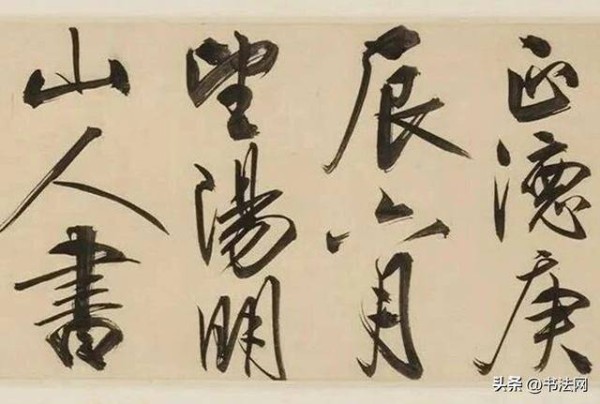 正德庚
辰六月
望陽明
山人書
头条 @书法网